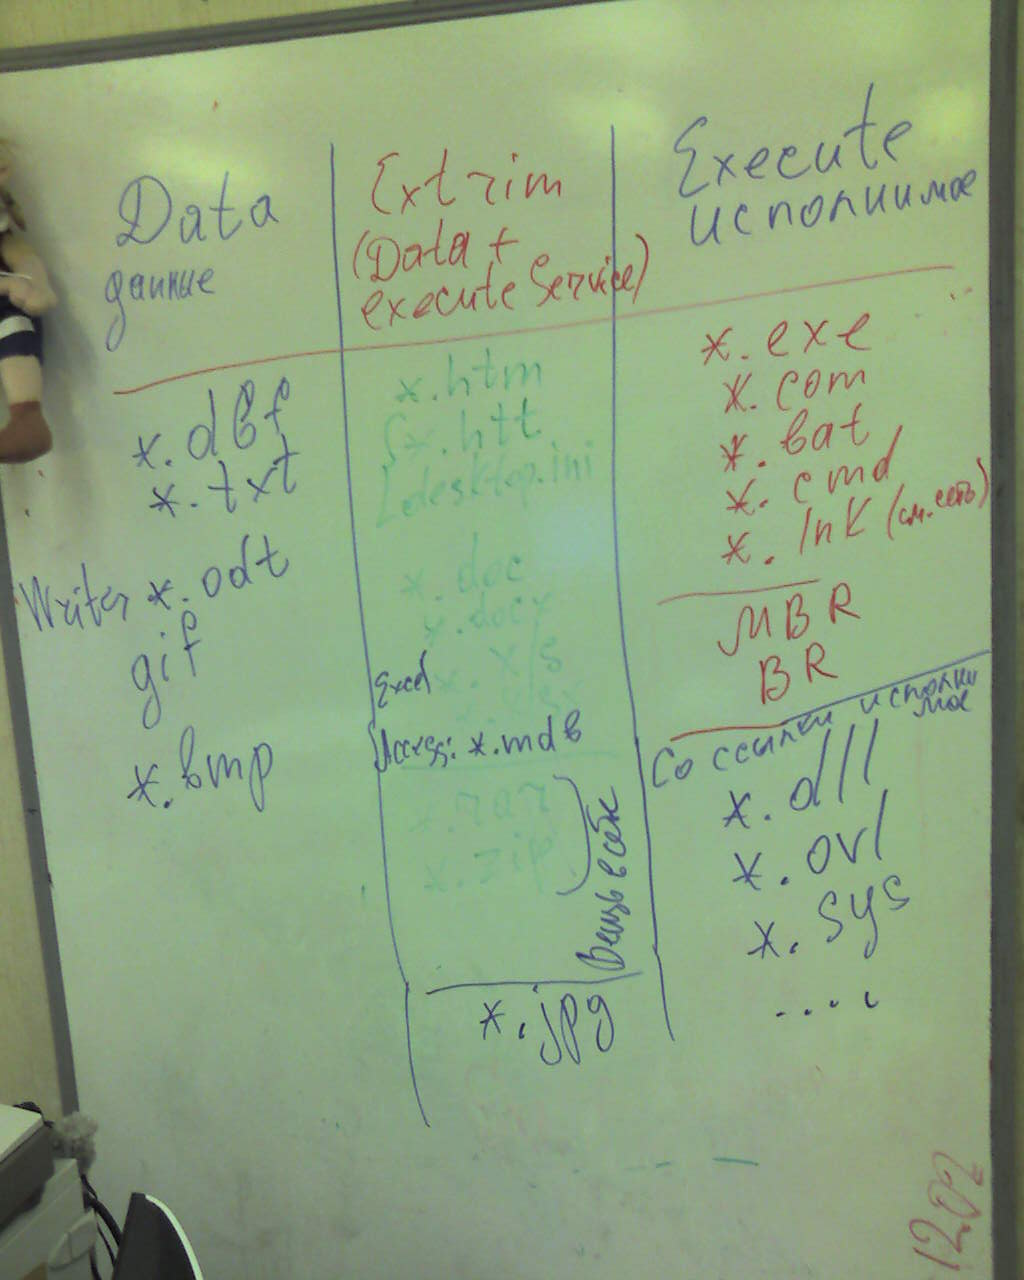 Data
данные
*.dbf
*.txt
Writer *.odt
gif
*.bmp
Extrim
(Data +
execute Service)
*.htm
*.htt
desktop.ini
*.doc
*.docx
Excel *.xls
Access: *.mdb
*.rar
*.zip
Вещь в себе
*.jpg
Execute
исполнимое
*.exe
*.com
*.bat
*.cmd
*.lnk (см. сеть)
MBR
BR
Со ссылки исполни
мое
*.dll
*.ovl
*.sys
....
12.02